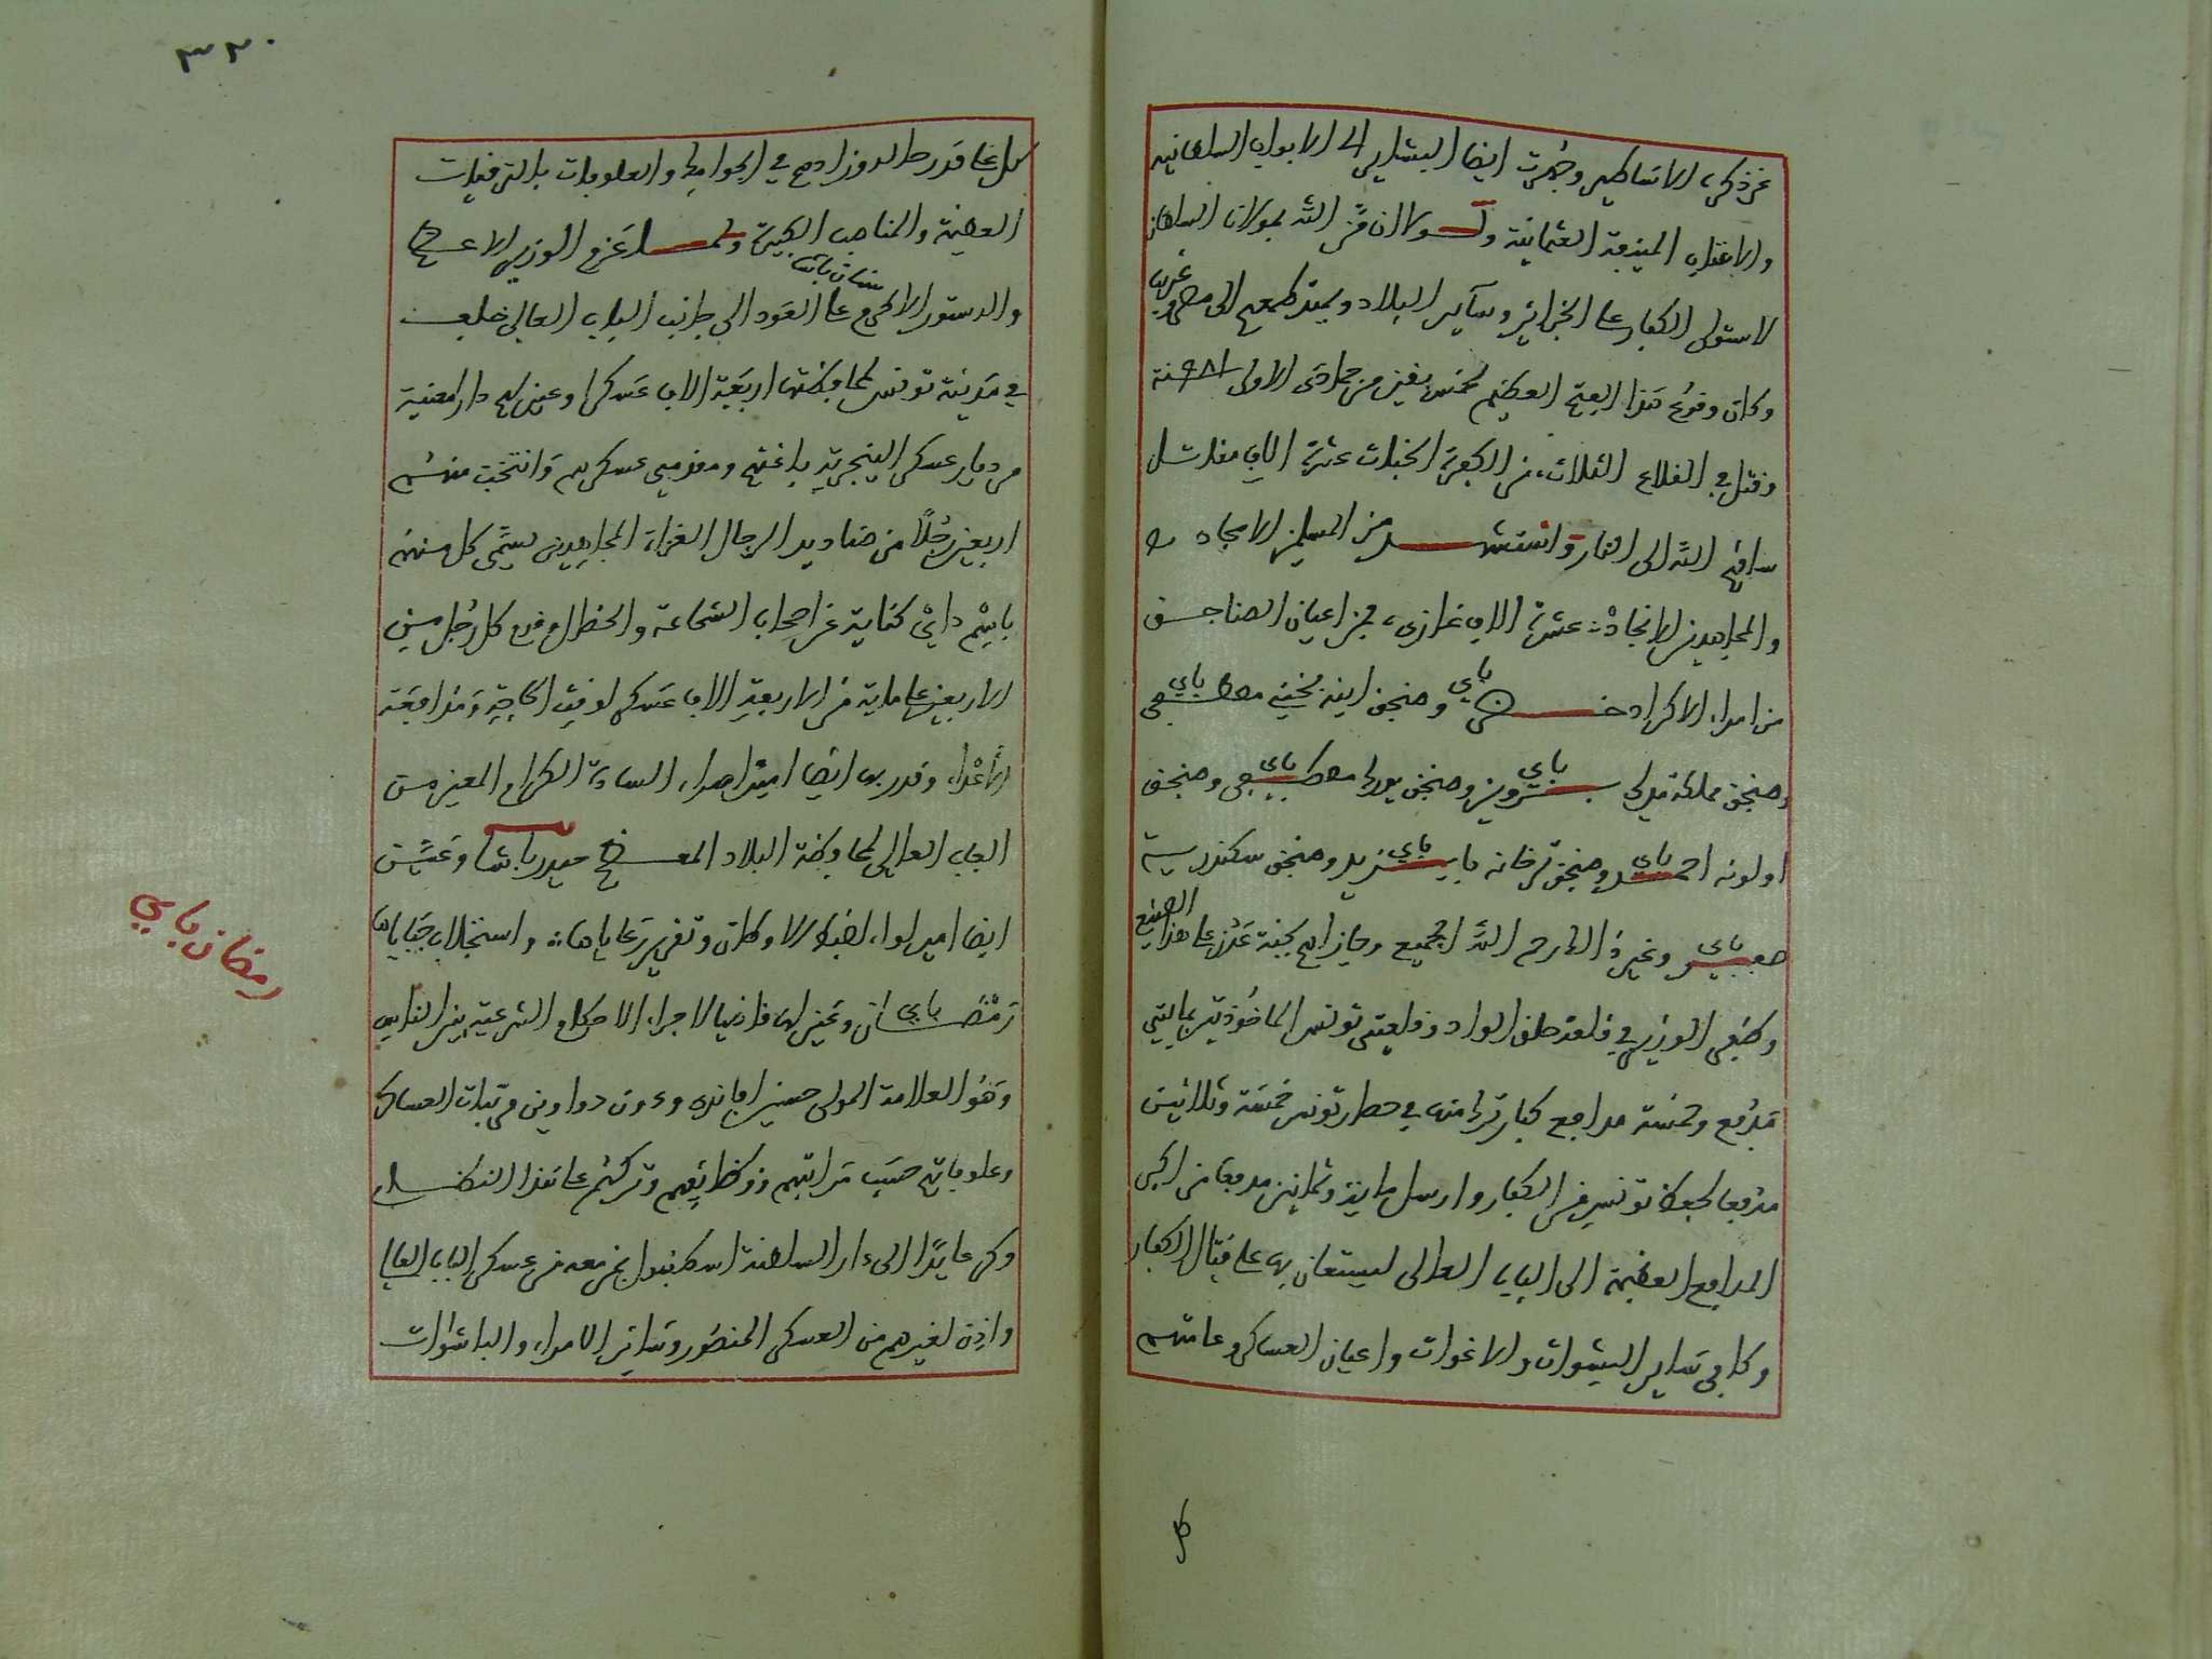 عن ذكره الاساطير وجهزت ايضا البشاير الى الابواب السلطانية
والاعتاب المنيفة العثمانية ولولا ان من الله بمولانا السلطان
لاستولى الكفار على الجزائر وساير البلاد ويمتد طمعهم الى مصر وغربت
وكان وقوع هذا الفتح العظيم لخمس بقين من جمادى الاولى سنة
وقتل في القلاع الثلاث من الكفرة عشرة الاف مقاتل
ساقهم الله الى النار واستشهد من المسلمين الامجاد
والمجاهدين الانجاد عشرة الاف غازي، فمن اعيان الصناجق
من امراء الاكراد باي وصنجق اينه بختي مصطفى باي
وصنجق مملكة مدلي باي وصنجق مصطفى باي وصنجق
اولونه احمد باي وصنجق ترخانه بايزيد باي وصنجق سكندرية
صفر باي وغيره الا رحم الله الجميع وجازاهم بجنة عدن على هذا الصنيع
وضبط الوزير في قلعة حلق الواد وقلعتي تونس الماخوذتين مايتي
مدفع وخمسة مدافع كبار ترك منها في حصار تونس خمسة وثلاثين
مدفعا لحفظ تونس من الكفار وارسل ماية وثمانين مدفعا من اكبر
المدافع العظيمة الى الباب العالي ليستعان بها على قتال الكفار
وكافى ساير البيشوات والاغوات واعيان العساكر وعامتهم
كل
٣٢٠
كل على قدر حاله وزادهم في الجوامك والعلوفات بالترقيات
العظيمة والمناصب الكبيرة ولما عزم الوزير الاعظم
سنان باشا
والدستور الاكرم على العود الى جانب الباب العالي خلف
في مدينة تونس لمحافظتها اربعة الاف عسكرا وعين لهم دار معينة
من ديار عسكر الينجرية باغتهم ومقدمي عسكرهم وانتخب منهم
اربعين رجلا من صناديد الرجال الغزاة المجاهدين يسمى كل منهم
باسم داي كناية عن اصحاب الشجاعة والخطال وقدم كل رجل من
الاربعين على ماية من الاربعة الاف عسكر لوقت الحاجة ومدافعة
الاعداء وقدر بها ايضا اميرا من امراء السادة الكرام المعين من
الباب العالي لمحافظة البلاد المعظم حيدر باشا وعين
ايضا امير لواء لضبط الاوطان وتقرير رعاياها واستجلاب جباياها
رمضان باي وعين لها قاضيا لاجراء الاحكام الشرعية بين الناس
وهو العلامة المولى حسين افاندي ودون دواوين مرتبات العساكر
وعلوفاتهم حسب مراتبهم ووظايفهم وتركهم على هذا النظام
وكر عايدا الى دار السلطنة اسطنبول بمن معه من عسكر الباب العالي
واذن لغيرهم من العسكر المنصور وساير الامراء والباشوات
رمضان باي